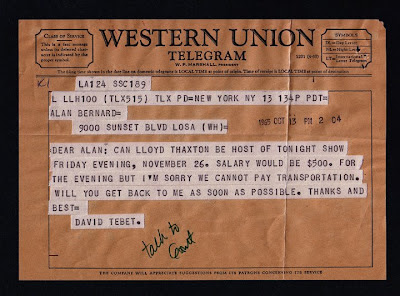 CLASS OF SERVICE
This is a fast message unless its deferred character is indicated by the proper symbol.
WESTERN UNION
TELEGRAM
W. P. MARSHALL, PRESIDENT
SYMBOLS
The filing time shown in the date line on domestic telegrams is LOCAL TIME at point of origin. Time of receipt is LOCAL TIME at point of destination
LA124 SSC189
L LLH100 (TLX515) TLX PD=NEW YORK NY 13 134P PDT=
ALAN BERNARD=
9000 SUNSET BLVD LOSA (WH)=
1965 OCT 13 PM 2 04
DEAR ALAN: CAN LLOYD THAXTON BE HOST OF TONIGHT SHOW
FRIDAY EVENING, NOVEMBER 26. SALARY WOULD BE $500. FOR
THE EVENING BUT I'M SORRY WE CANNOT PAY TRANSPORTATION.
WILL YOU GET BACK TO ME AS SOON AS POSSIBLE. THANKS AND
BEST=
DAVID TEBET.
talk to
THE COMPANY WILL APPRECIATE SUGGESTIONS FROM ITS PATRONS CONCERNING ITS SERVICE